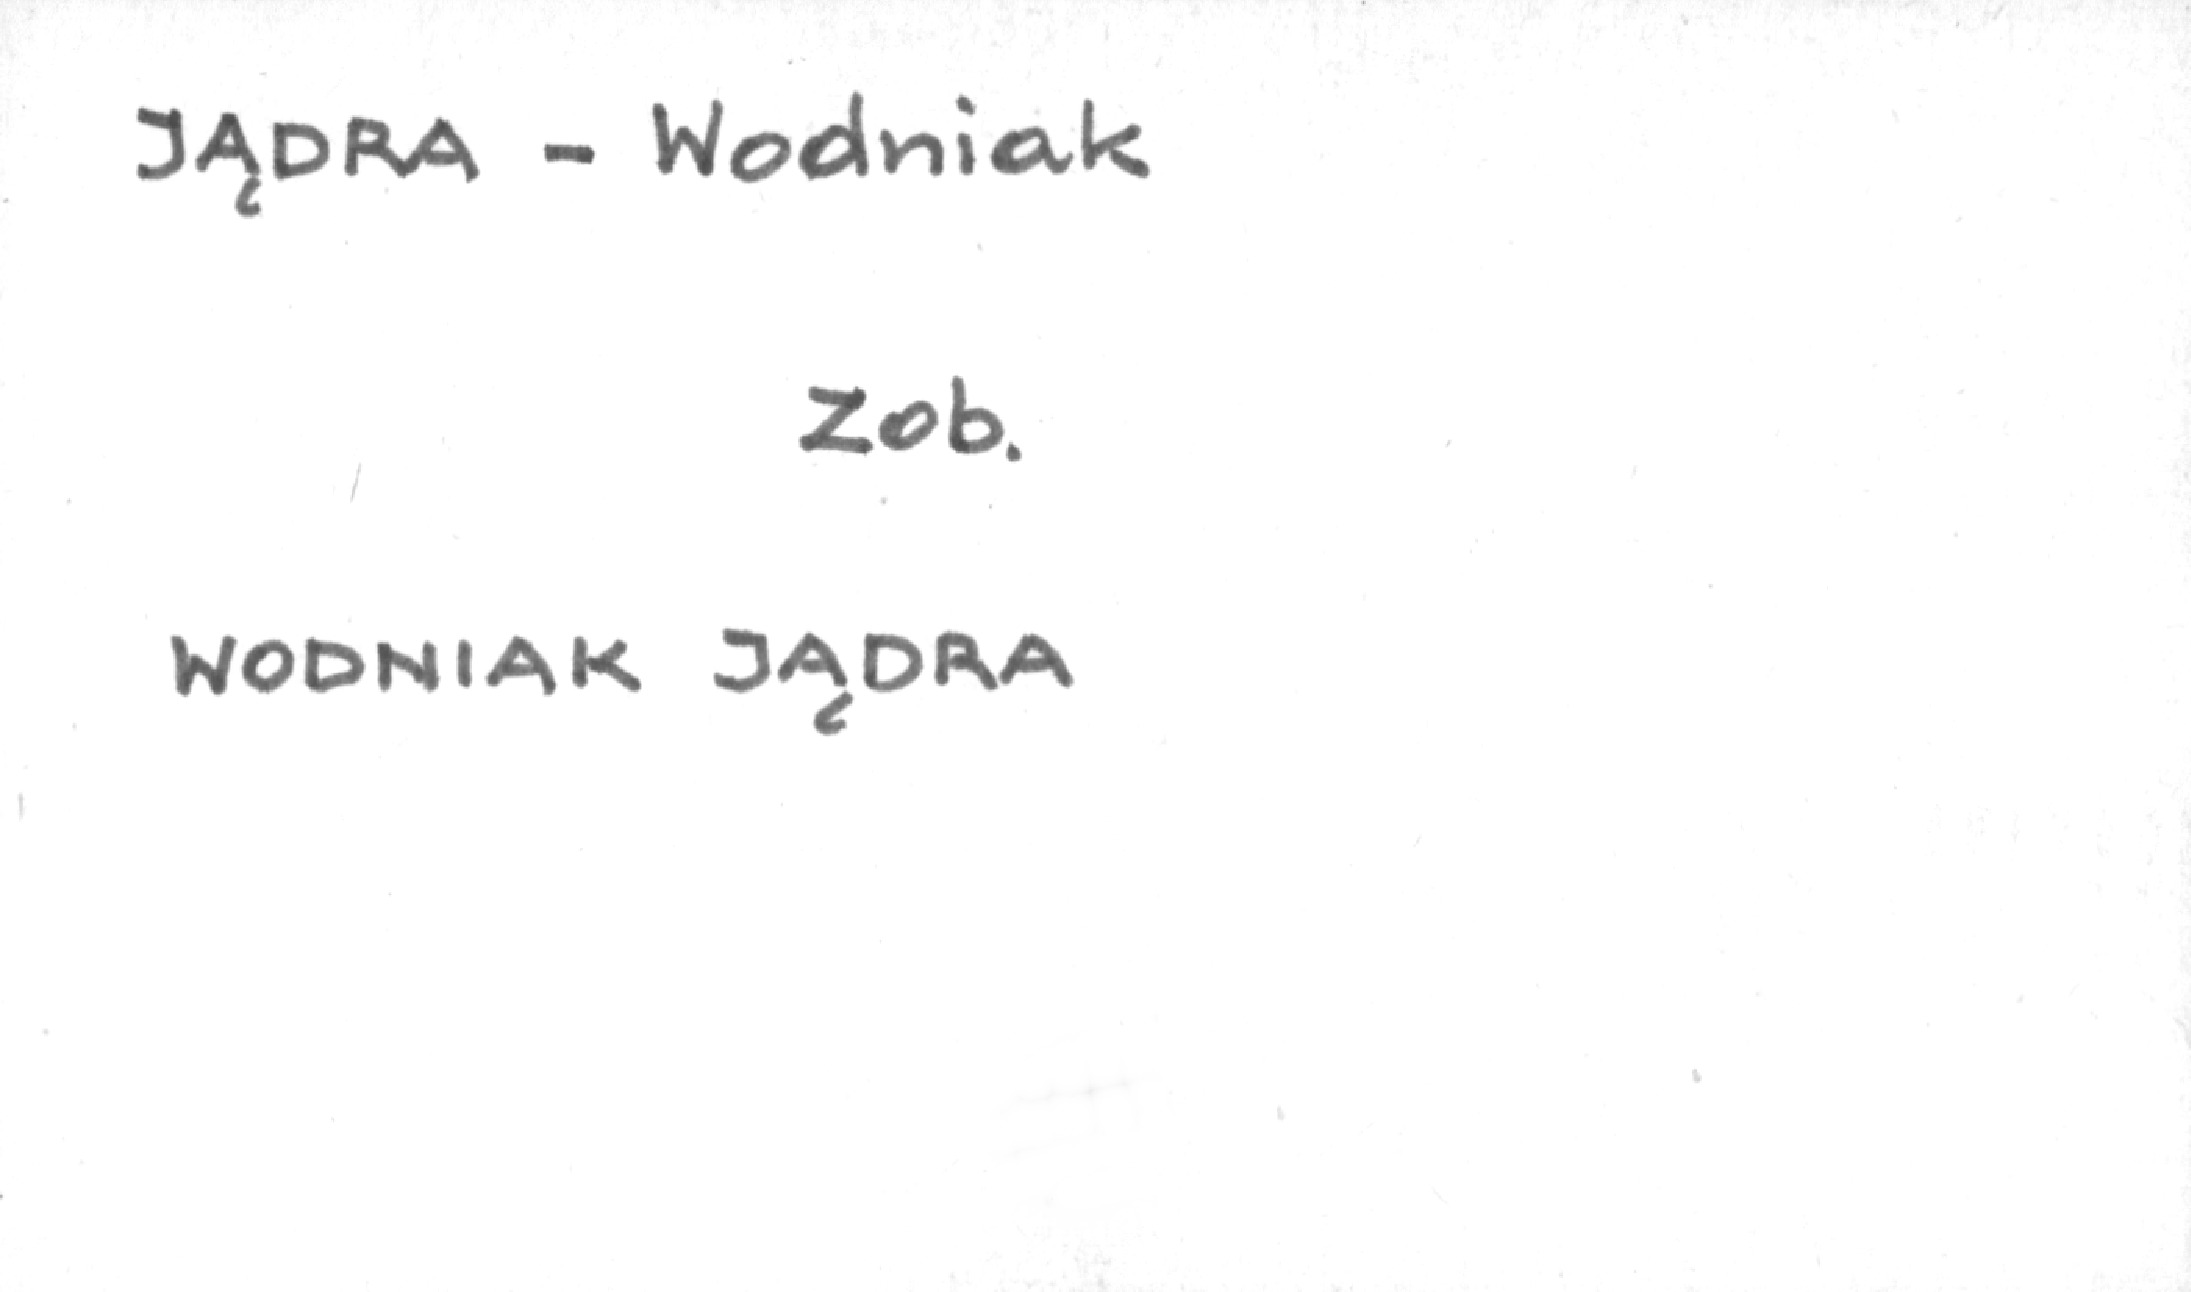 JĄDRA - Wodniak
Zob.
WODNIAK JĄDRA